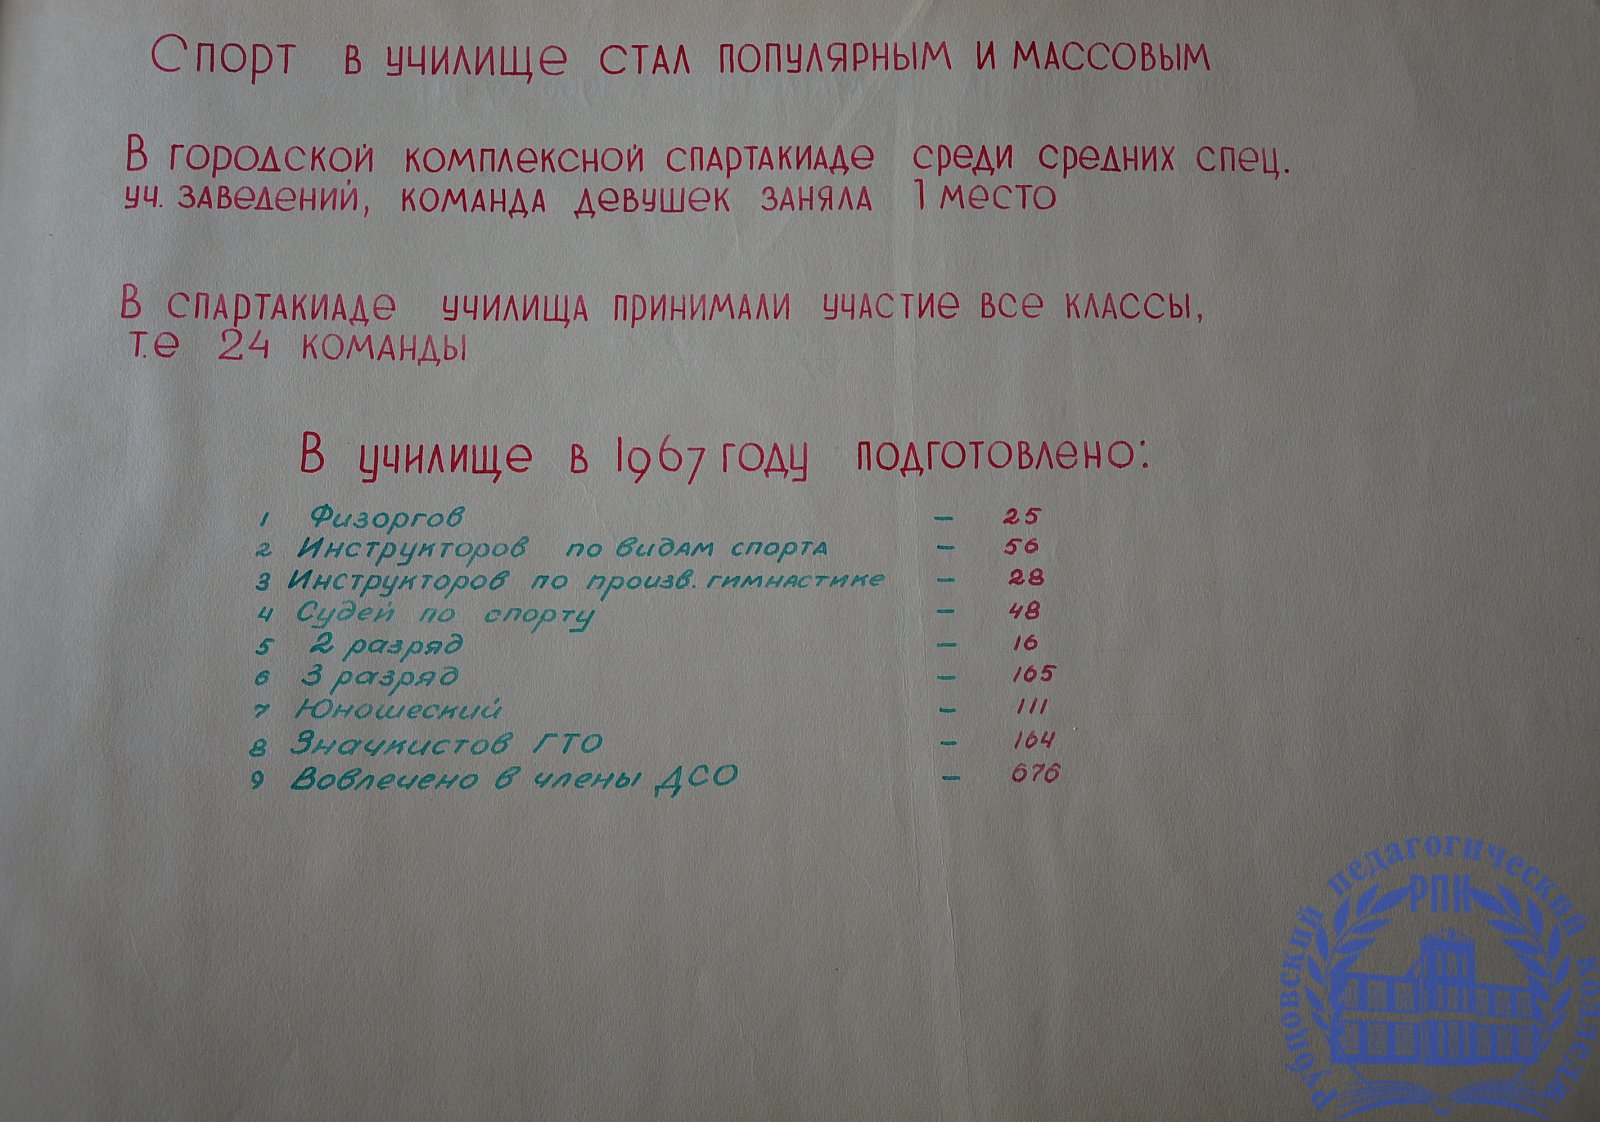 Спорт в училище стал популярным и массовым
В городской комплексной спартакиаде среди средних спец.
уч. заведений, команда девушек заняла 1 место
В спартакиаде училища принимали участие все классы,
т.е 24 команды
В училище в 1967 году подготовлено:
1 Физоргов – 25
2 Инструкторов по видам спорта – 56
3 Инструкторов по произв. гимнастике – 28
4 Судей по спорту – 48
5 2 разряд – 16
6 3 разряд – 165
7 Юношеский – 111
8 Значкистов ГТО – 164
9 Вовлечено в члены ДСО – 676
Рубцовский педагогический колледж
РПК